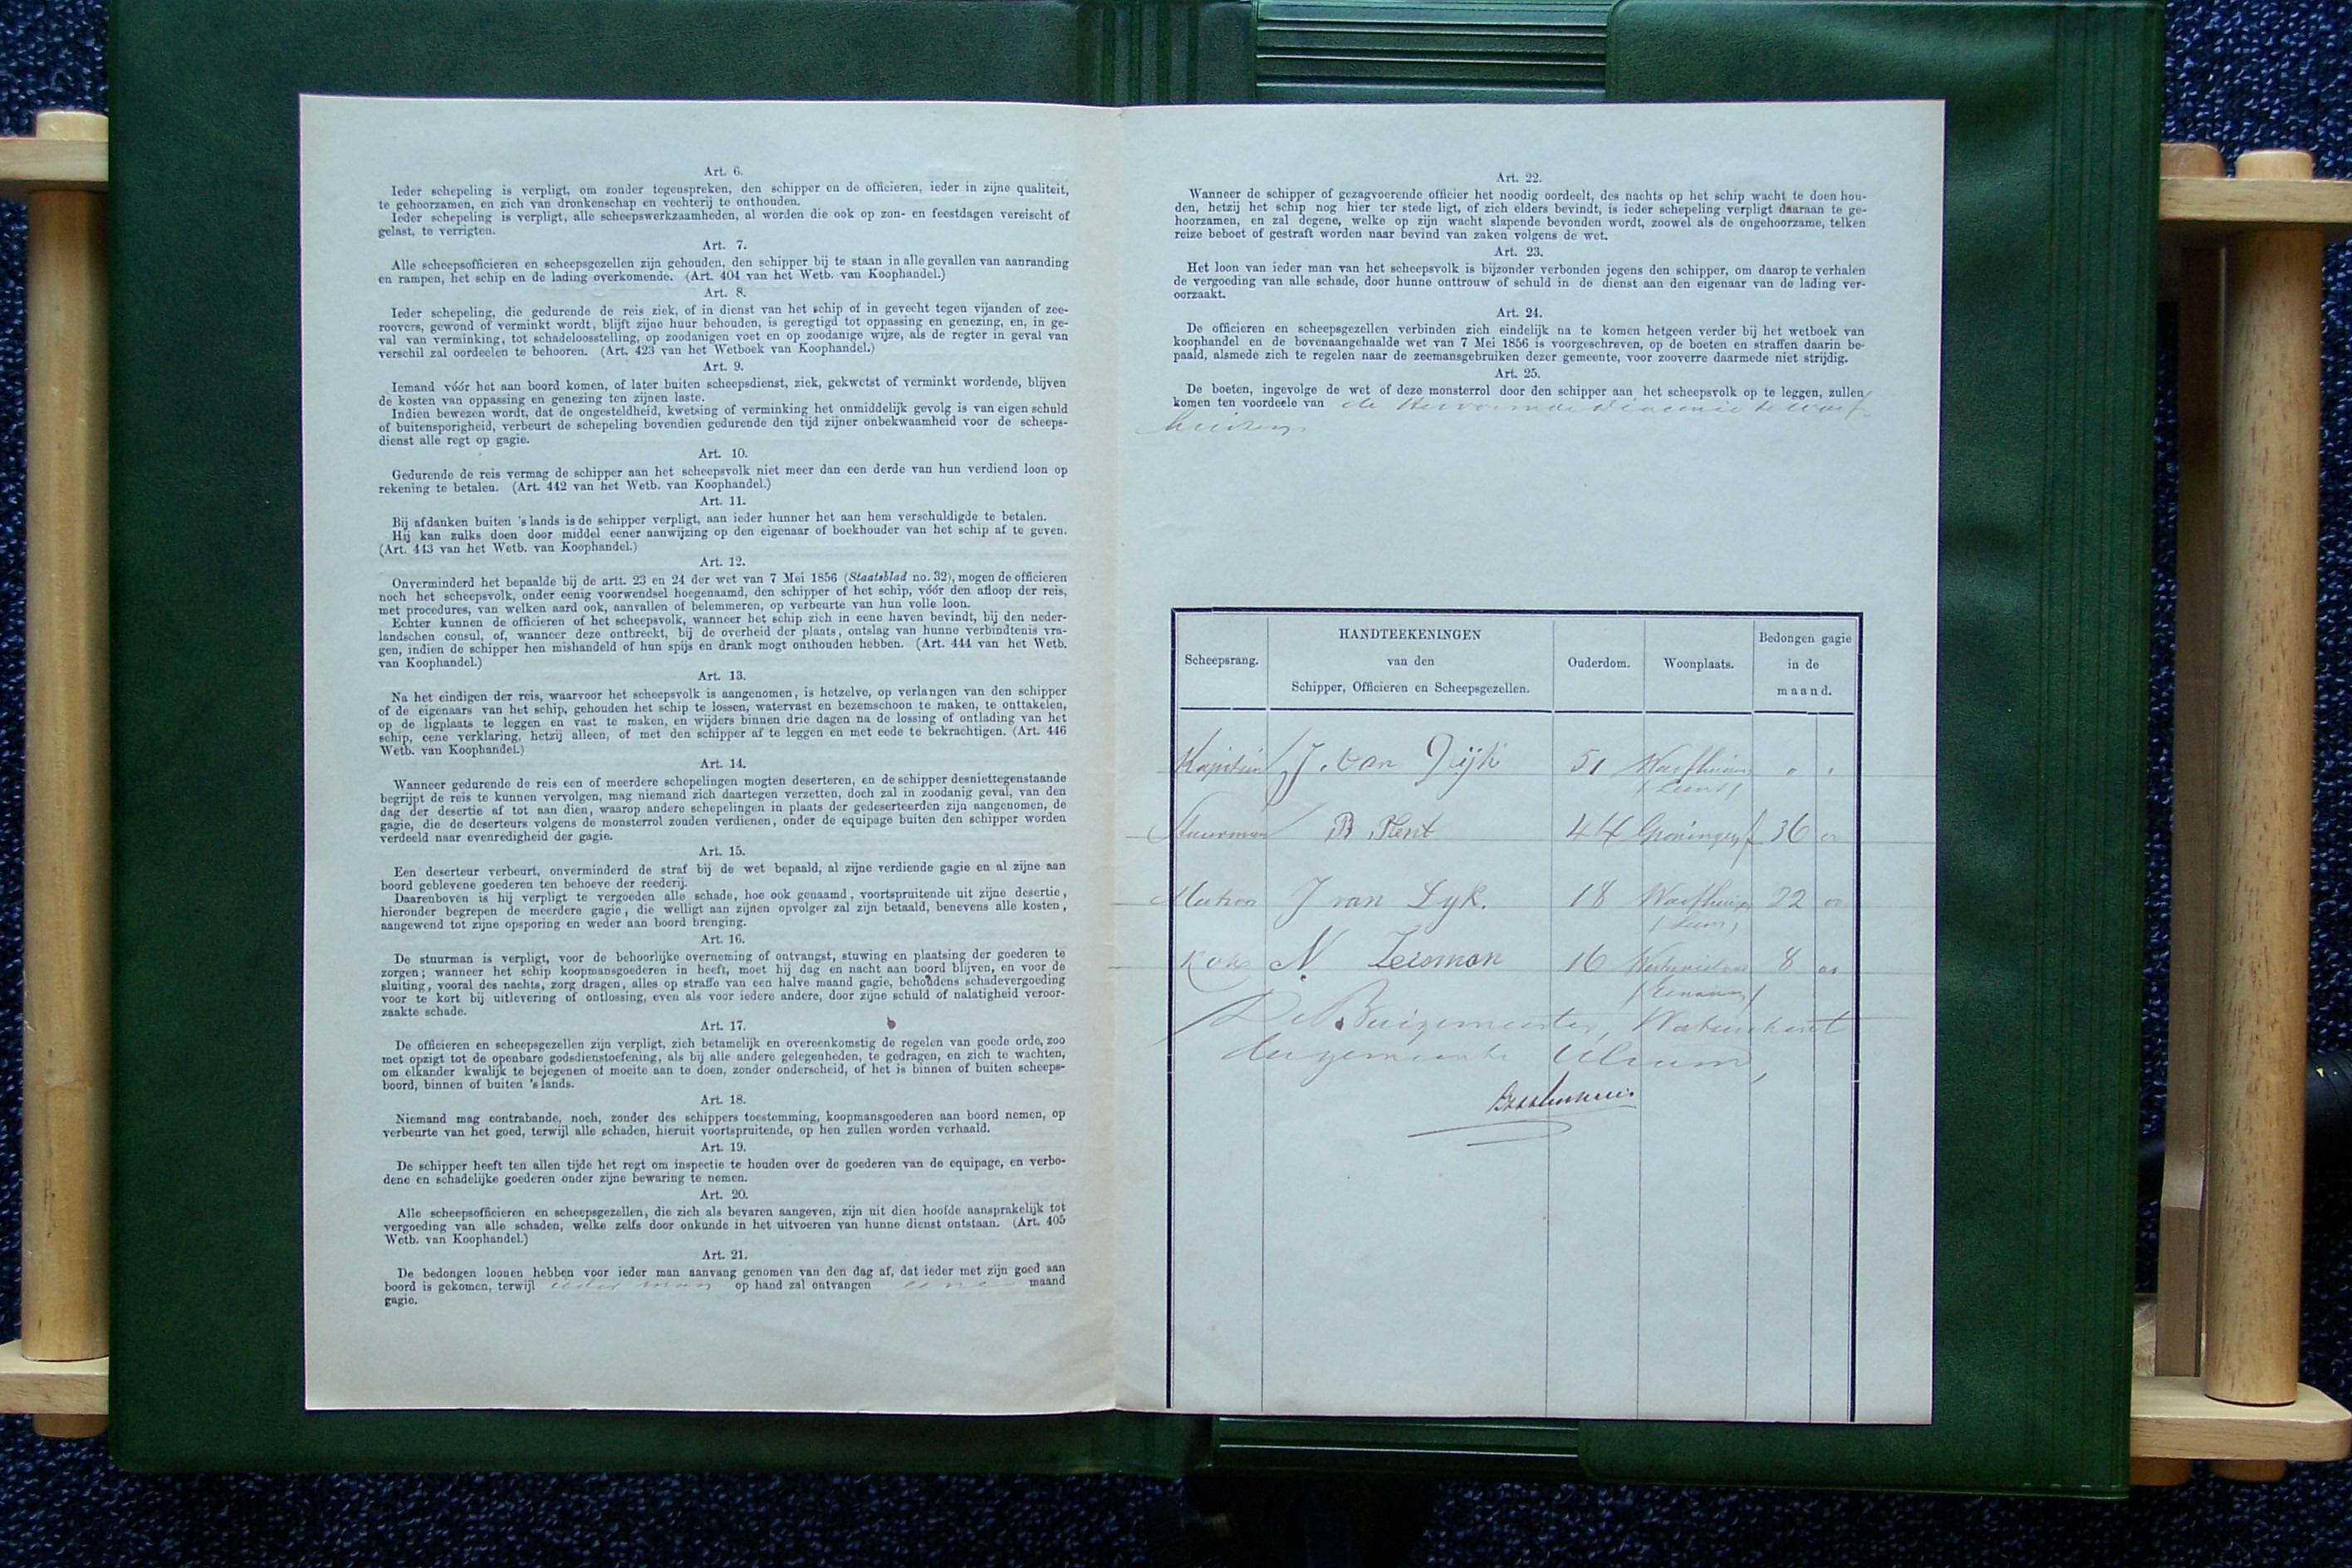 Art. 6.
Ieder schepeling is verpligt, om zonder tegenspreken, den schipper en de officieren, ieder in zijne qualiteit,
te gehoorzamen, en zich van dronkenschap en vechterij te onthouden.
Ieder schepeling is verpligt, alle scheepswerkzaamheden, al worden die ook op zon- en feestdagen vereischt of
gelast, te verrigten.
Art. 7.
Alle scheepsofficieren en scheepsgezellen zijn gehouden, den schipper bij te staan in alle gevallen van aanranding
en rampen, het schip en de lading overkomende. (Art. 404 van het Wetb. van Koophandel.)
Art. 8.
Ieder schepeling, die gedurende de reis ziek, of in dienst van het schip of in gevecht tegen vijanden of zee-
roovers, gewond of verminkt wordt, blijft zijne huur behouden, is geregtigd tot oppassing en genezing, en, in ge-
val van verminking, tot schadeloosstelling, op zoodanigen voet en op zoodanige wijze, als de regter in geval van
verschil zal oordeelen te behooren. (Art. 423 van het Wetboek van Koophandel.)
Art. 9.
Iemand vóór het aan boord komen, of later buiten scheepsdienst, ziek, gekwetst of verminkt wordende, blijven
de kosten van oppassing en genezing ten zijnen laste.
Indien bewezen wordt, dat de ongesteldheid, kwetsing of verminking het onmiddelijk gevolg is van eigen schuld
of buitensporigheid, verbeurt de schepeling bovendien gedurende den tijd zijner onbekwaamheid voor de scheeps-
dienst alle regt op gagie.
Art. 10.
Gedurende de reis vermag de schipper aan het scheepsvolk niet meer dan een derde van hun verdiend loon op
rekening te betalen. (Art. 442 van het Wetb. van Koophandel.)
Art. 11.
Bij afdanken buiten 's lands is de schipper verpligt, aan ieder hunner het aan hem verschuldigde te betalen.
Hij kan zulks doen door middel eener aanwijzing op den eigenaar of boekhouder van het schip af te geven.
(Art. 443 van het Wetb. van Koophandel.)
Art. 12.
Onverminderd het bepaalde bij de artt. 23 en 24 der wet van 7 Mei 1856 (Staatsblad no. 32), mogen de officieren
noch het scheepsvolk, onder eenig voorwendsel hoegenaamd, den schipper of het schip, vóór den afloop der reis,
met procedures, van welken aard ook, aanvallen of belemmeren, op verbeurte van hun volle loon.
Echter kunnen de officieren of het scheepsvolk, wanneer het schip zich in eene haven bevindt, bij den neder-
landschen consul, of, wanneer deze ontbreekt, bij de overheid der plaats, ontslag van hunne verbindtenis vra-
gen, indien de schipper hen mishandeld of hun spijs en drank mogt onthouden hebben. (Art. 444 van het Wetb.
van Koophandel.)
Art. 13.
Na het eindigen der reis, waarvoor het scheepsvolk is aangenomen, is hetzelve, op verlangen van den schipper
of de eigenaars van het schip, gehouden het schip te lossen, watervast en bezemschoon te maken, te onttakelen,
op de ligplaats te leggen en vast te maken, en wijders binnen drie dagen na de lossing of ontlading van het
schip, eene verklaring, hetzij alleen, of met den schipper af te leggen en met eede te bekrachtigen. (Art. 446
Wetb. van Koophandel.)
Art. 14.
Wanneer gedurende de reis een of meerdere schepelingen mogten deserteren, en de schipper desniettegenstaande
begrijpt de reis te kunnen vervolgen, mag niemand zich daartegen verzetten, doch zal in zoodanig geval, van den
dag der desertie af tot aan dien, waarop andere schepelingen in plaats der gedeserteerden zijn aangenomen, de
gagie, die de deserteurs volgens de monsterrol zouden verdienen, onder de equipage buiten den schipper worden
verdeeld naar evenredigheid der gagie.
Art. 15.
Een deserteur verbeurt, onverminderd de straf bij de wet bepaald, al zijne verdiende gagie en al zijne aan
boord geblevene goederen ten behoeve der reederij.
Daarenboven is hij verpligt te vergoeden alle schade, hoe ook genaamd, voortspruitende uit zijne desertie,
hieronder begrepen de meerdere gagie, die welligt aan zijnen opvolger zal zijn betaald, benevens alle kosten,
aangewend tot zijne opsporing en weder aan boord brenging.
Art. 16.
De stuurman is verpligt, voor de behoorlijke overneming of ontvangst, stuwing en plaatsing der goederen te
zorgen; wanneer het schip koopmansgoederen in heeft, moet hij dag en nacht aan boord blijven, en voor de
sluiting, vooral des nachts, zorg dragen, alles op straffe van een halve maand gagie, behoudens schadevergoeding
voor te kort bij uitlevering of ontlossing, even als voor iedere andere, door zijne schuld of nalatigheid veroor-
zaakte schade.
Art. 17.
De officieren en scheepsgezellen zijn verpligt, zich betamelijk en overeenkomstig de regelen van goede orde, zoo
met opzigt tot de openbare godsdienstoefening, als bij alle andere gelegenheden, te gedragen, en zich te wachten,
om elkander kwalijk te bejegenen of moeite aan te doen, zonder onderscheid, of het is binnen of buiten scheeps-
boord, binnen of buiten 's lands.
Art. 18.
Niemand mag contrabande, noch, zonder des schippers toestemming, koopmansgoederen aan boord nemen, op
verbeurte van het goed, terwijl alle schaden, hieruit voortspruitende, op hen zullen worden verhaald.
Art. 19.
De schipper heeft ten allen tijde het regt om inspectie te houden over de goederen van de equipage, en verbo-
dene en schadelijke goederen onder zijne bewaring te nemen.
Art. 20.
Alle scheepsofficieren en scheepsgezellen, die zich als bevaren aangeven, zijn uit dien hoofde aansprakelijk tot
vergoeding van alle schaden, welke zelfs door onkunde in het uitvoeren van hunne dienst ontstaan. (Art. 405
Wetb. van Koophandel.)
Art. 21.
De bedongen loonen hebben voor ieder man aanvang genomen van den dag af, dat ieder met zijn goed aan
boord is gekomen, terwijl ieder man op hand zal ontvangen eene maand
gagie.
Art. 22.
Wanneer de schipper of gezagvoerende officier het noodig oordeelt, des nachts op het schip wacht te doen hou-
den, hetzij het schip nog hier ter stede ligt, of zich elders bevindt, is ieder schepeling verpligt daaraan te ge-
hoorzamen, en zal degene, welke op zijn wacht slapende bevonden wordt, zoowel als de ongehoorzame, telken
reize beboet of gestraft worden naar bevind van zaken volgens de wet.
Art. 23.
Het loon van ieder man van het scheepsvolk is bijzonder verbonden jegens den schipper, om daarop te verhalen
de vergoeding van alle schade, door hunne onttrouw of schuld in de dienst aan den eigenaar van de lading ver-
oorzaakt.
Art. 24.
De officieren en scheepsgezellen verbinden zich eindelijk na te komen hetgeen verder bij het wetboek van
koophandel en de bovenaangehaalde wet van 7 Mei 1856 is voorgeschreven, op de boeten en straffen daarin be-
paald, alsmede zich te regelen naar de zeemansgebruiken dezer gemeente, voor zooverre daarmede niet strijdig.
Art. 25.
De boeten, ingevolge de wet of deze monsterrol door den schipper aan het scheepsvolk op te leggen, zullen
komen ten voordeele van de Hervormde diaconie te Warf-
huizen.
Scheepsrang. HANDTEEKENINGEN van den Schipper, Officieren en Scheepsgezellen. Ouderdom. Woonplaats. Bedongen gagie in de maand.
Kapitein J. van Dijk 51 Warfhuizen " "
(Leens)
Stuurman B Kent 44 Groningen f 36 00
Matroos J van Dyk. 18 Warfhuizen 22 00
(Leens)
Kok N. Zeisman 16 8 00
De Burgemeester, Waterschout
der gemeente Ulrum,